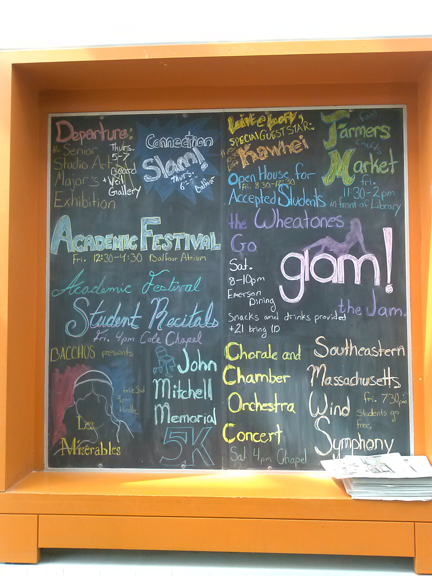 Departure:
the Senior
Studio Art
Major's
Exhibition
Thurs.
5-7
Beard
+ Weil
Gallery
Connection
Slam!
Thurs.
Balfour
SPECIAL GUEST STAR:
Open House for
Fri. 8:30-12:30
Accepted Students
Farmers
Market
fri.
11:30-2pm
in front of Library
Academic Festival
Fri. 12:30-4:30 Balfour Atrium
Academic Festival
Student Recitals
Fri. 4pm Cole Chapel
the Wheatones
Go
glam!
Sat.
8-10pm
Emerson
Dining
the Jam.
Snacks and drinks provided
+21 bring ID
BACCHUS presents
Les
Misérables
John
Mitchell
Memorial
5K
Chorale and
Chamber
Orchestra
Concert
Sat 4pm Chapel
Southeastern
Massachusetts
Wind
Fri. 7:30
Students go
free
Symphony